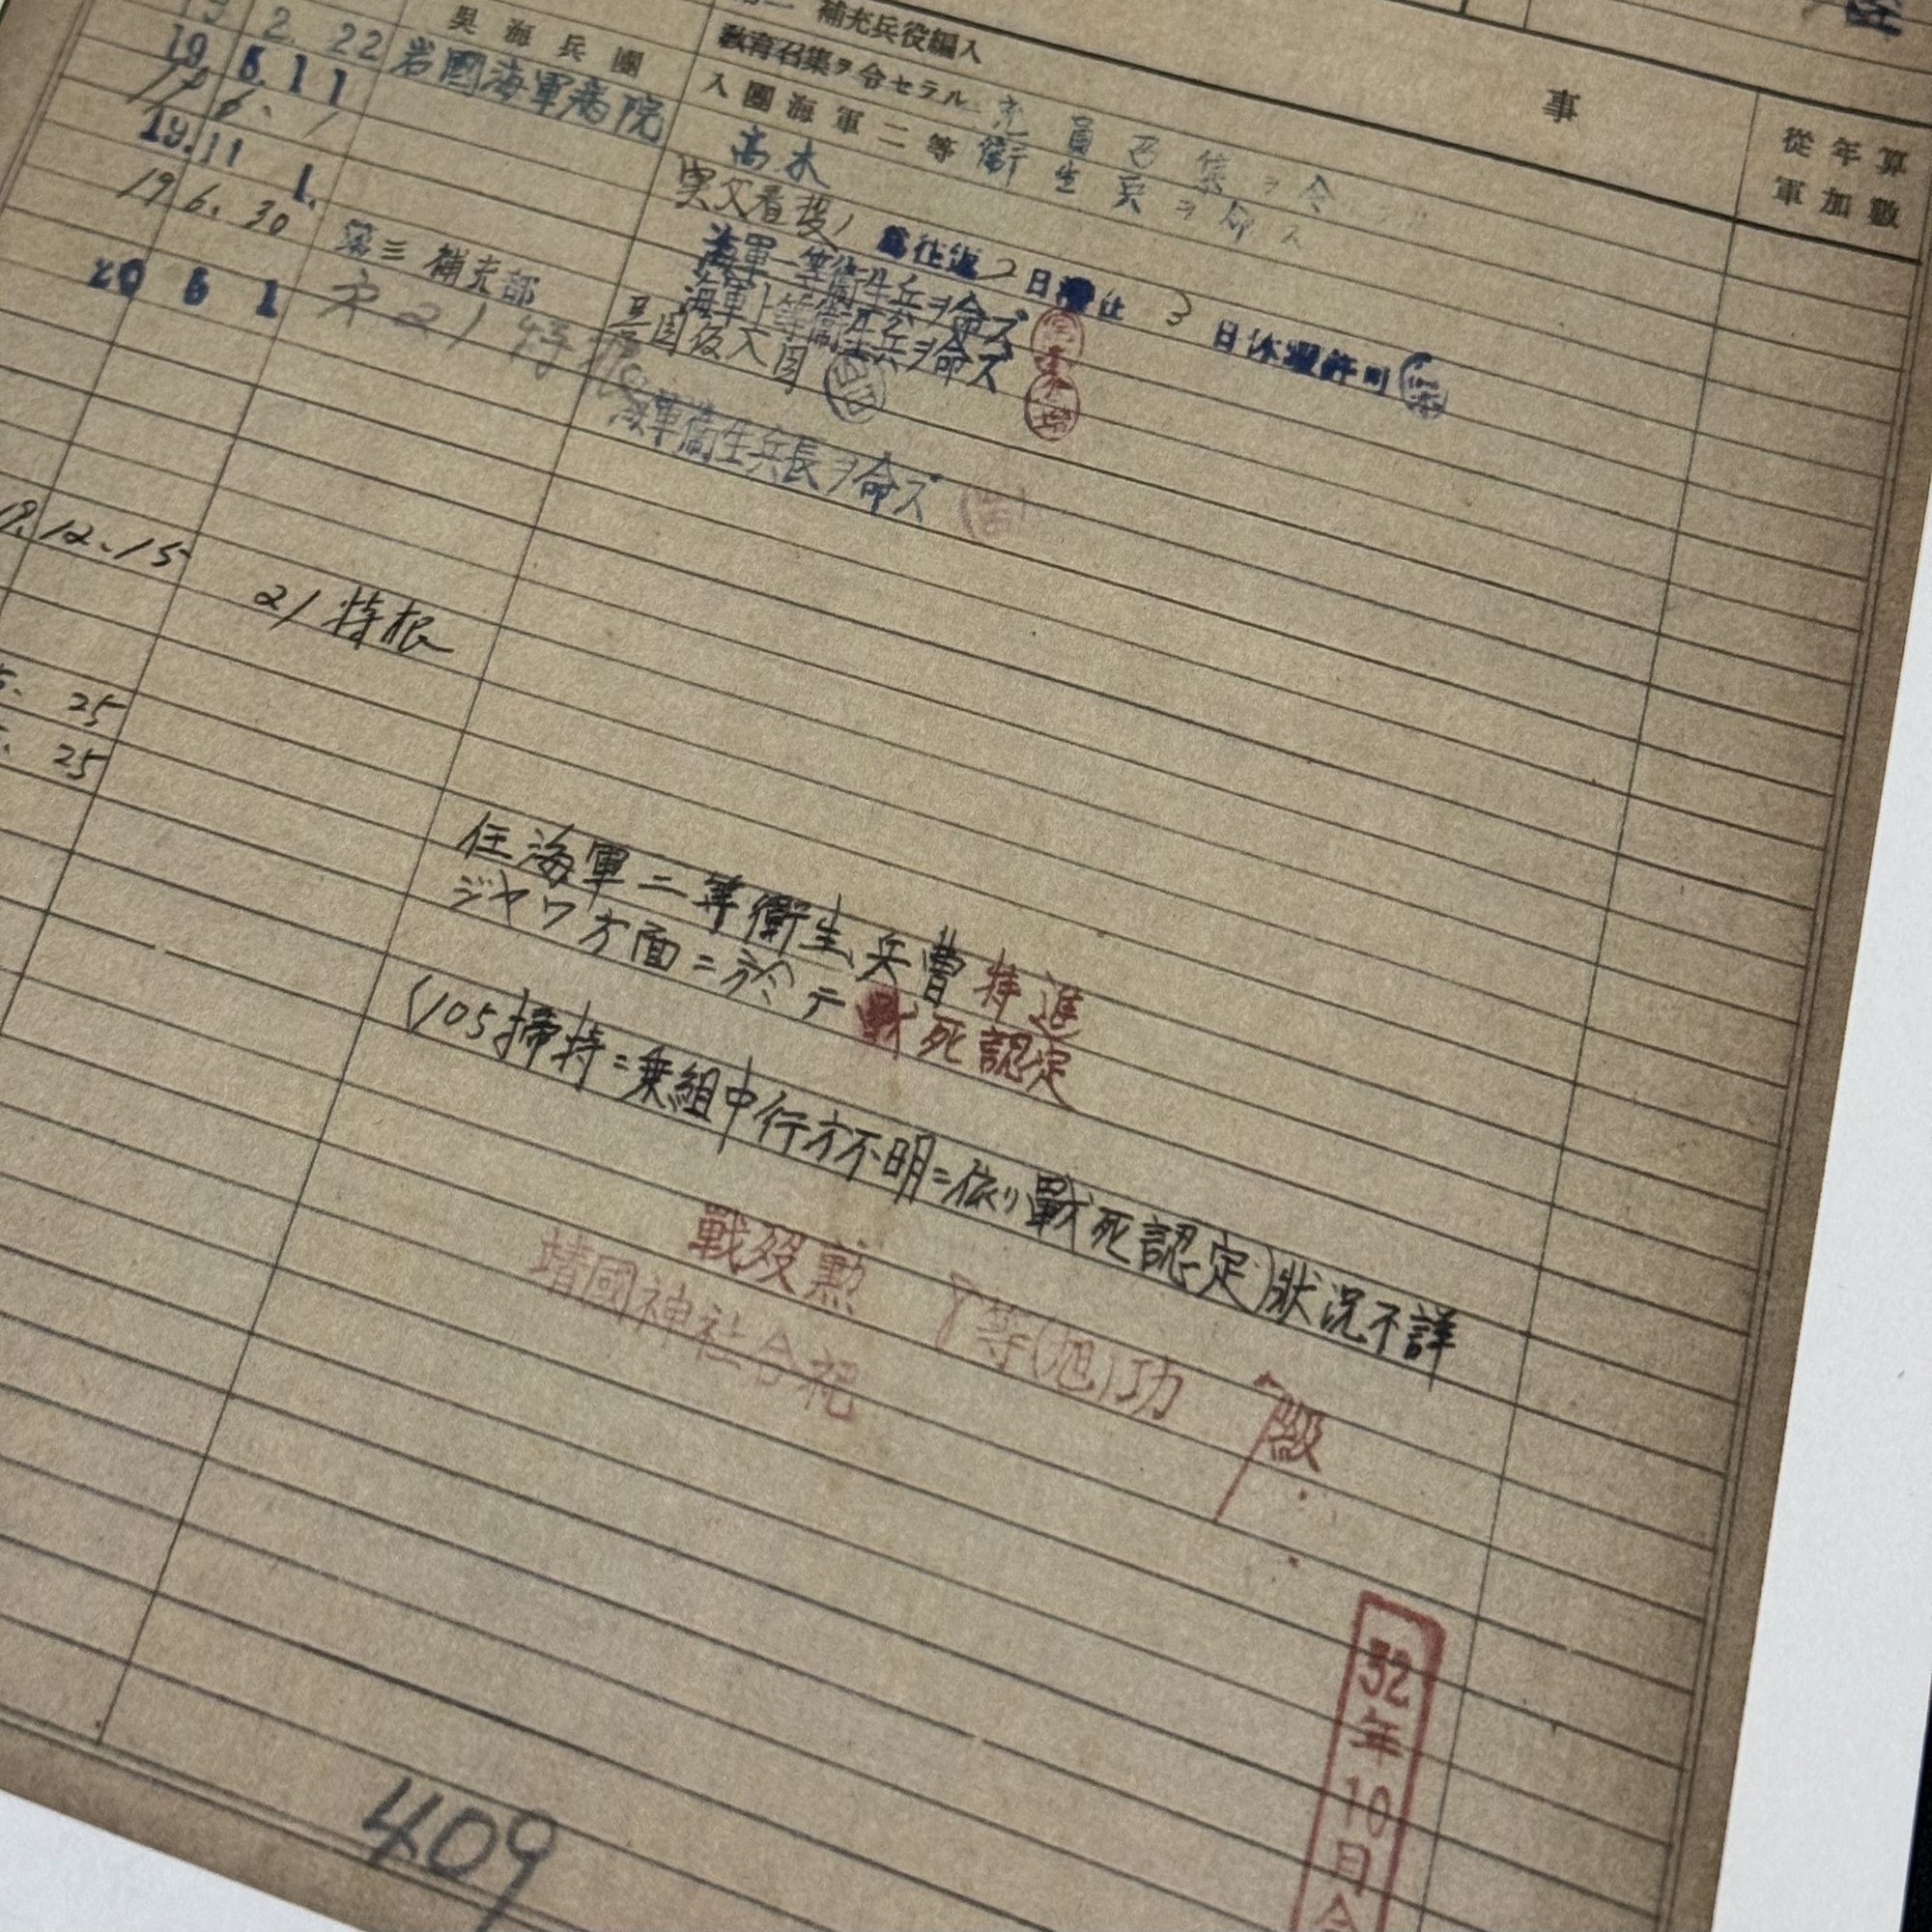 補充兵役編入
事
從軍年加算數
2. 22 呉海兵團 教育召集ヲ令セラル 充員召集ヲ令
19. 5. 11 岩國海軍病院 入團海軍二等衛生兵ヲ命ス
19. 6. 1
高木
実父看護ノ為往返2日 3日休暇許可
19. 11 1. 海軍一等衛生兵ヲ命ズ
海軍上等衛生兵ヲ命ズ
19. 6. 30 第三補充部 呉団仮入団
20 5 1 海軍衛生兵長ヲ命ズ
才21特根
9. 12. 15 21特根
25 任海軍二等衛生兵曹 特進
25 ジャワ方面ニ於テ戰死認定
(105掃特ニ乗組中行方不明ニ依リ戰死認定)狀況不詳
戰歿勲 等(旭)功 級
靖國神社合祀
32年10月合
409